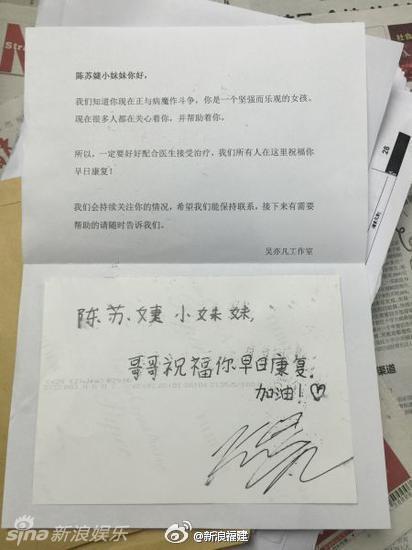 陈苏婕小妹妹你好，
我们知道你现在正与病魔作斗争，你是一个坚强而乐观的女孩。
现在很多人都在关心着你，并帮助着你。
所以，一定要好好配合医生接受治疗，我们所有人在这里祝福你
早日康复！
我们会持续关注你的情况，希望我们能保持联系，接下来有需要
帮助的请随时告诉我们。
吴亦凡工作室
陈苏婕小妹妹，
哥哥祝福你早日康复，
加油！♡
sina新浪娱乐
@新浪福建